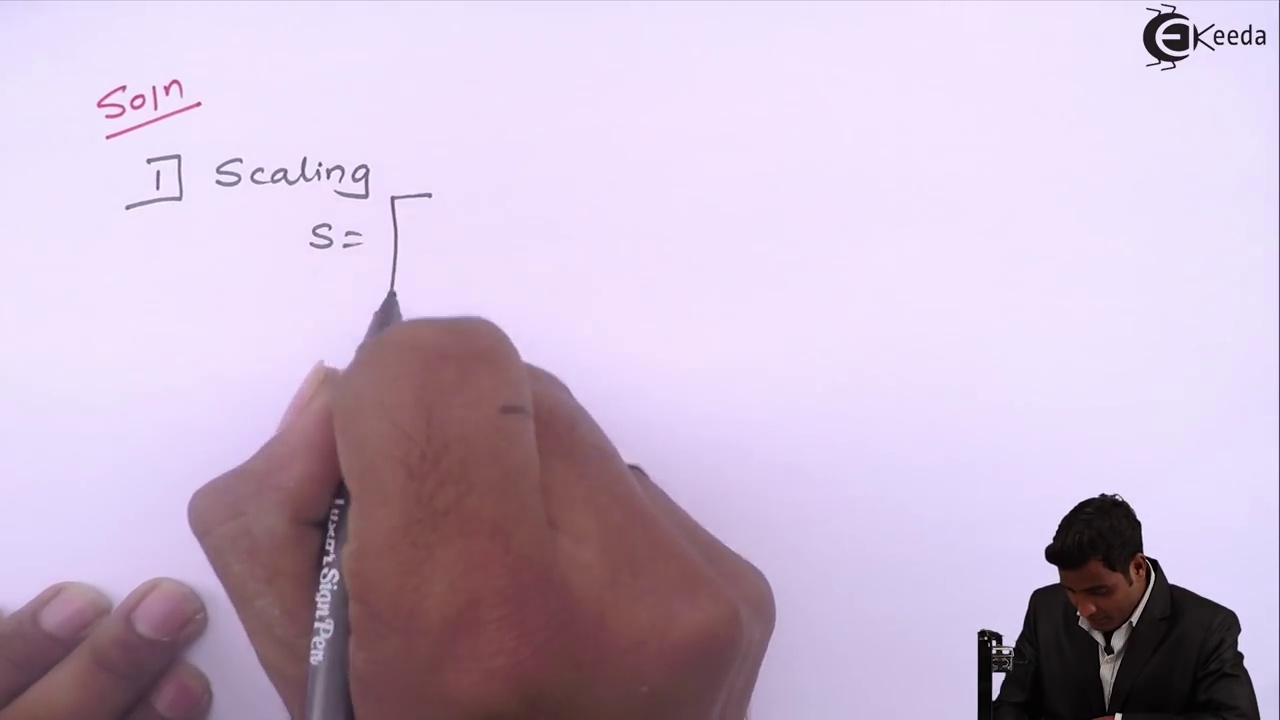 EKeeda
Soln
I] Scaling
S= [
Luxor Sign Pen